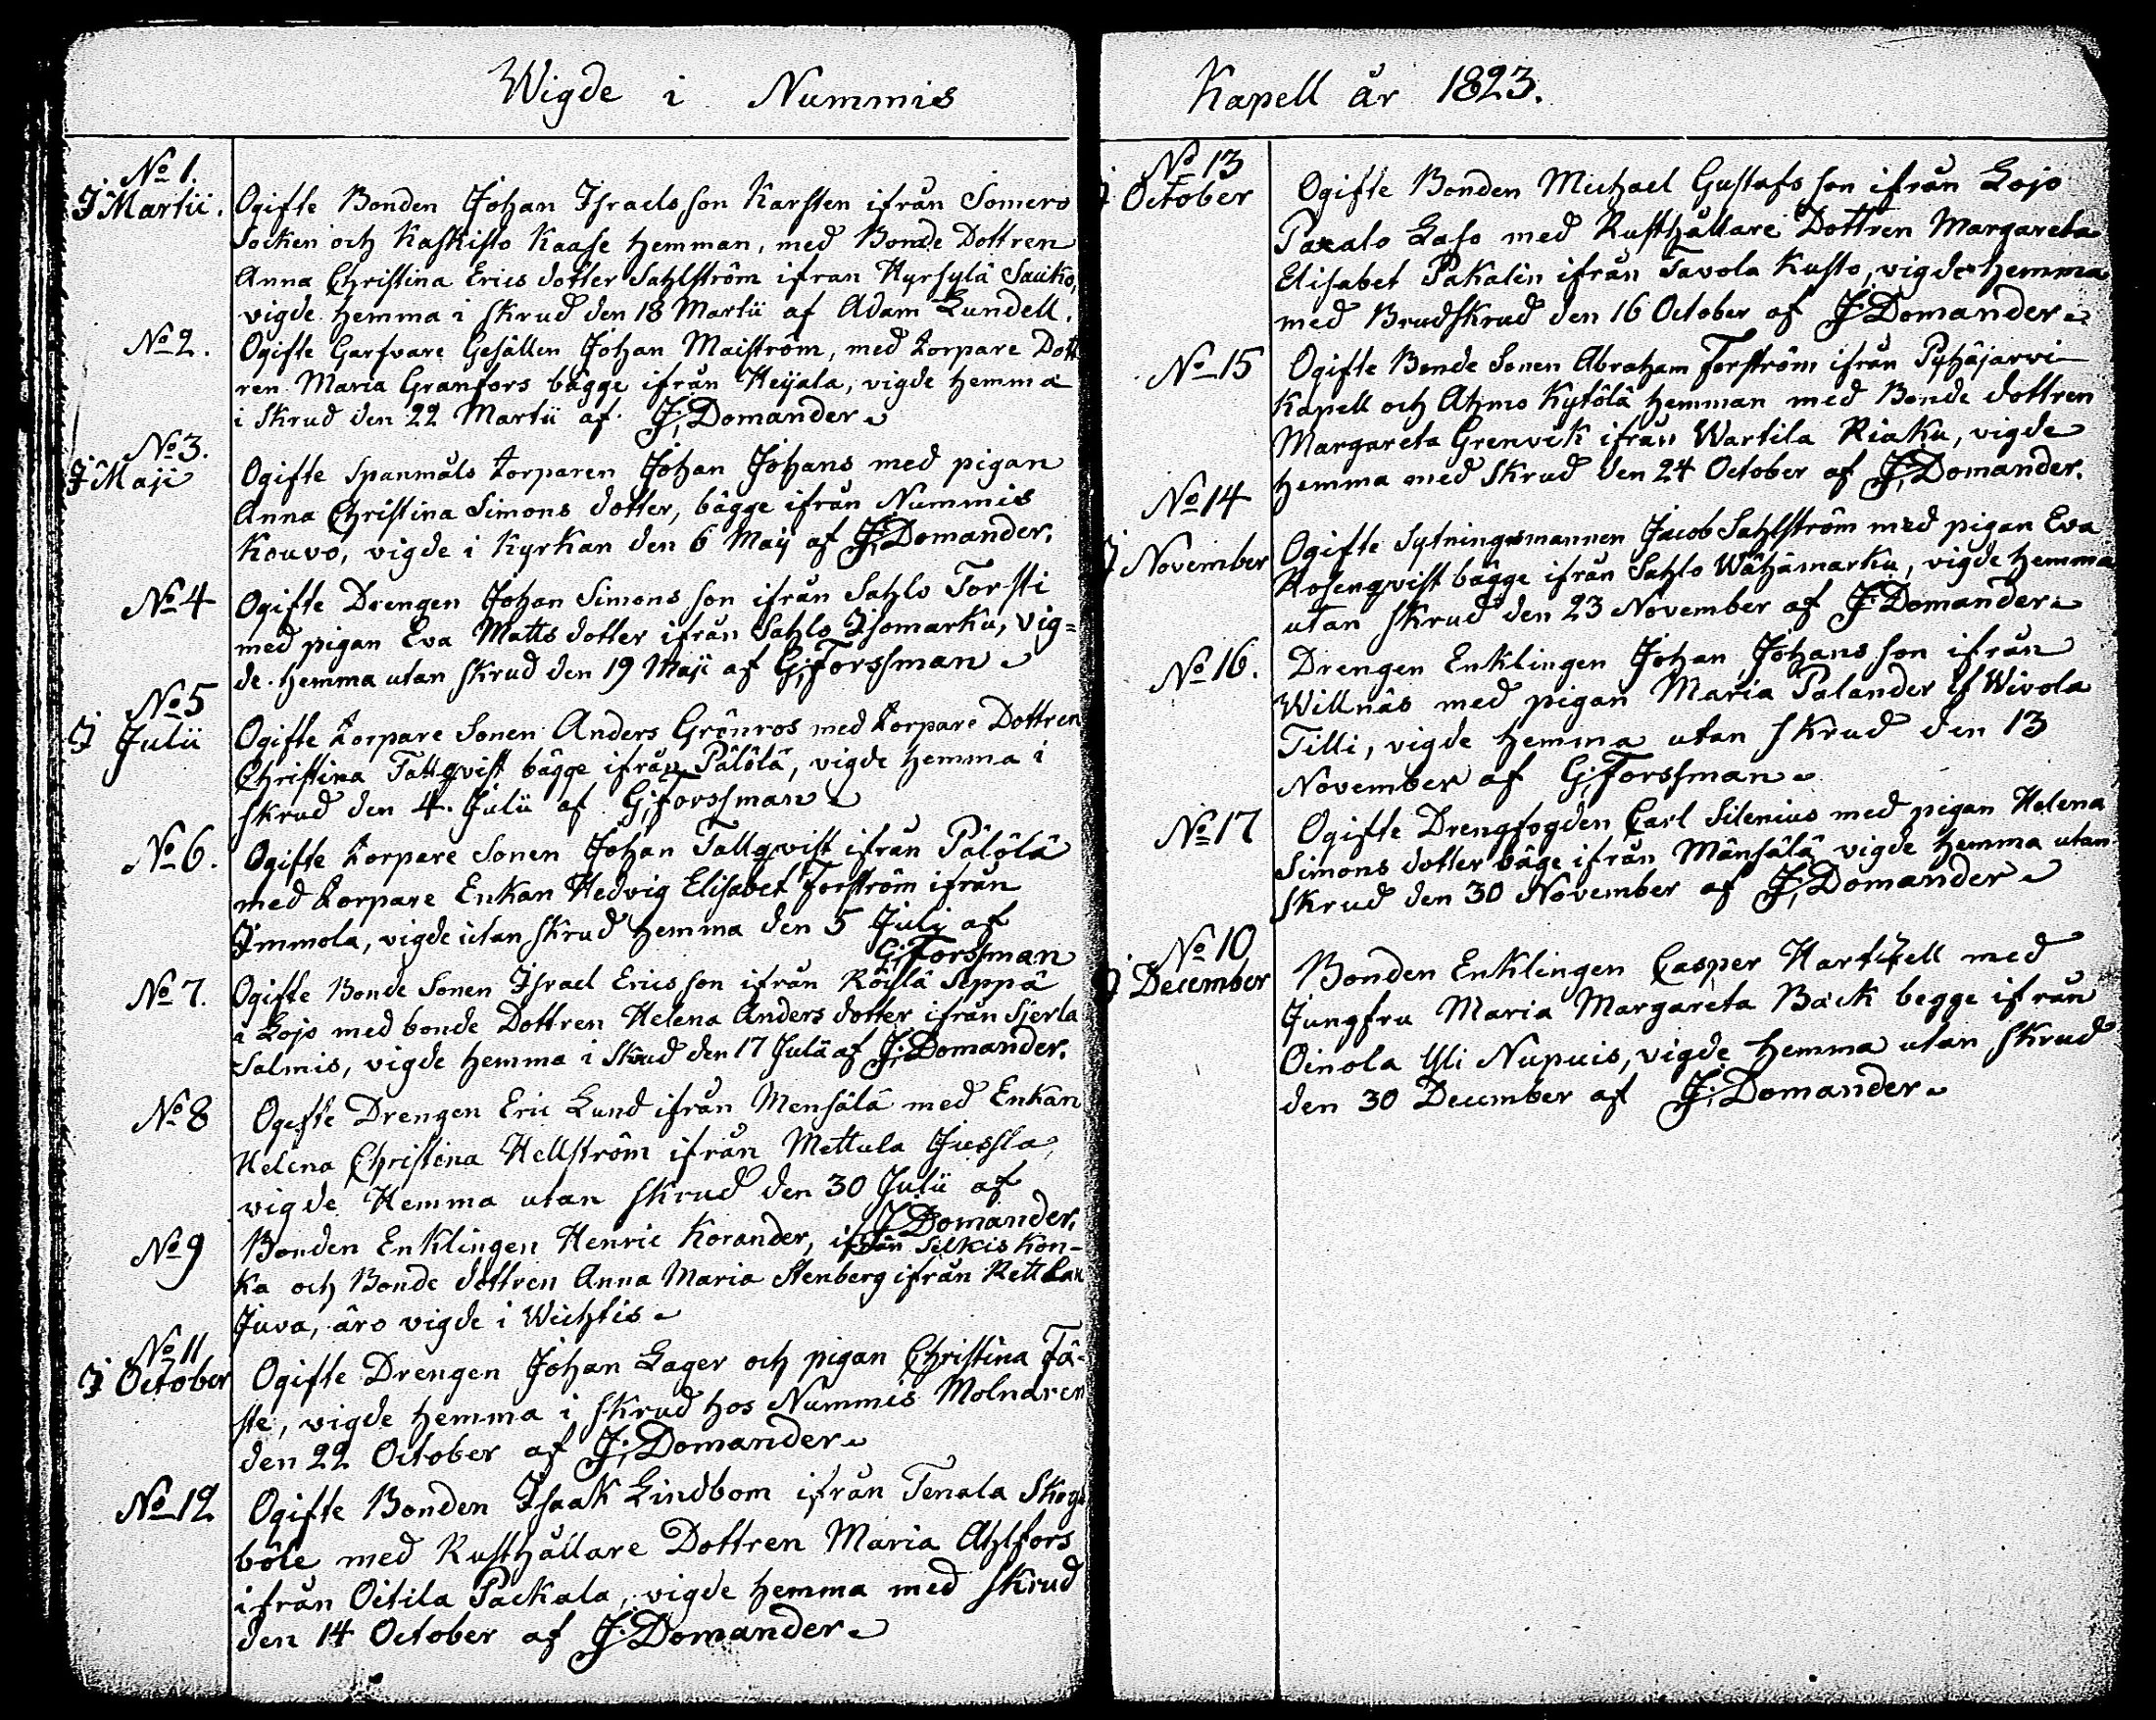 Wigde i Nummis
Kapell år 1823.
No 1.
J Martii.
Ogifte Bonden Johan Israelsson Karsten ifrån Somero
Socken och Kaskisto Kaase Hemman, med Bonde Dottren
Anna Christina Erics dotter Sahlström ifran Hyrsylä Sauko,
vigde hemma i skrud den 18 Martii af Adam Lundell.
No 2.
Ogifte Garfvare Gesällen Johan Maiström, med torpare Dott
ren Maria Granfors bägge ifrån Heijala, vigde hemma
i skrud den 22 Martii af J; Domander
No 3.
J Maji
Ogifte Spanmåls torparen Johan Johans med pigan
Anna Christina Simons dotter, bägge ifrån Nummis
Kouvo, vigde i Kyrkan den 6 Maij af J; Domander.
No 4
Ogifte Drengen Johan Simons son ifrån Sahlo Torsti
med pigan Eva Matts dotter ifrån Sahlo Isomarku, vig=
de hemma utan skrud den 19 Maji af G; Forssman
No 5
J Julii
Ogifte torpare Sonen Anders Grönros med torpare Dottren
Christina Tallqvist bägge ifrån Pälölä, vigde hemma i
skrud den 4. Julii af G; Forssman
No 6.
Ogifte torpare Sonen Johan Tallqvist ifrån Pälölä
med torpare Enkan Hedvig Elisabet Forström ifrån
Immola, vigde utan skrud hemma den 5 Julij af
G; Forssman
No 7.
Ogifte Bonde Sonen Israel Ericsson ifrån Röylä Seppä
i Lojo med bonde Dottren Helena Anders dotter ifrån Sjerla
Salmis, vigde hemma i Skrud den 17 Julii af J; Domander.
No 8
Ogifte Drengen Eric Lund ifrån Mensälä med Enkan
Helena Christina Hellström ifrån Mettula Jussla,
vigde Hemma utan skrud den 30 Julii af
J Domander.
No 9
Bonden Enklingen Henric Korander, ifrån Selkis Kon-
ka och Bonde dottren Anna Maria Stenberg ifrån
Juva, äro vigde i Wichtis
No 11
J October
Ogifte Drengen Johan Lager och pigan Christina Fä-
ste, vigde hemma i skrud hos Nummis Molnaren
den 22 October af J; Domander
No 12
Ogifte Bonden Isaak Lindbom ifrån Tenala Skogs
böle med Rusthållare Dottren Maria Ahlfors
ifrån Oitila Packala, vigde hemma med skrud
den 14 October af J; Domander
No 13
J October
Ogifte Bonden Michael Gustafs son ifrån Lojo
Paxalo Laso med Rusthållare Dottren Margareta
Elisabet Pakalin ifrån Tavola Kusto, vigde hemma
med Brudskrud den 16 October af J; Domander
No 15
Ogifte Bonde Sonen Abraham Forström ifrån Pyhäjarvi
Kapell och Ahmo Kytölä hemman med Bonde dottren
Margareta Grenvik ifrån Wartila Riaku, vigde
hemma med skrud den 24 October af J; Domander.
No 14
J November
Ogifte Sytningsmannen Jacob Sahlström med pigan Eva
Rosenqvist bägge ifrån Sahlo Wähämarku, vigde hemma
utan skrud den 23 November af J; Domander
No 16.
Drengen Enklingen Johan Johans son ifrån
Willnäs med pigan Maria Palander if Wivola
Tilli, vigde hemma utan skrud den 13
November af G; Forssman
No 17
Ogifte Drengfogden Carl Silenius med pigan Helena
Simons dotter bäge ifrån Mänsälä vigde hemma utan
skrud den 30 November af J; Domander
No 10
J December
Bonden Enklingen Casper Hartzell med
Jungfru Maria Margareta Back begge ifrån
Oinola Yli Nupuis, vigde hemma utan skrud
den 30 December af J; Domander